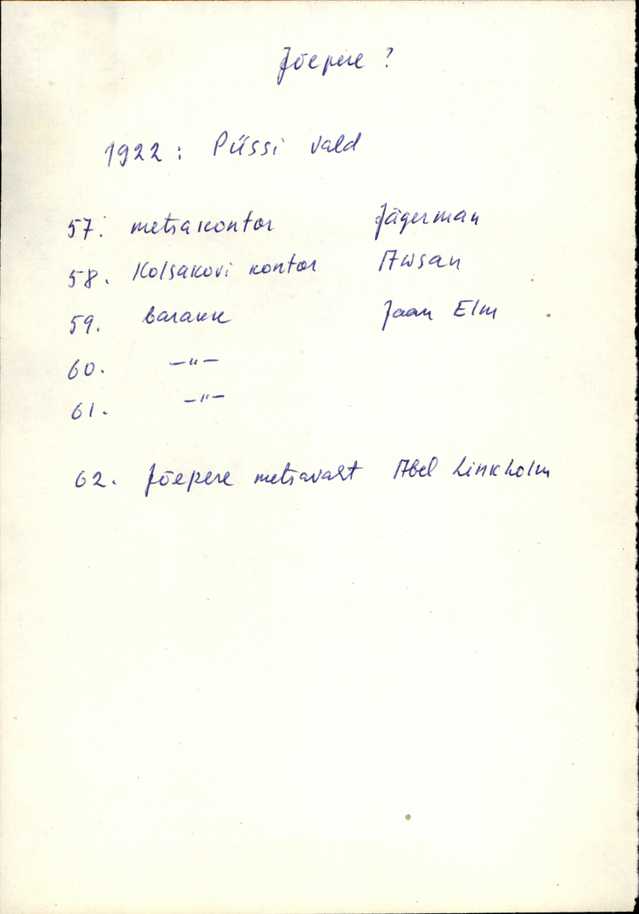 Jõepere ?
1922 : Püssi vald
57. metsakontor Jägerman
58. Kolsakovi kontor Awsan
59. barakk Jaan Elm
60. —"—
61. —"—
62. Jõepere metsavaht Abel Linkholm